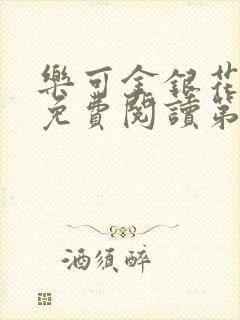 樂可金銀花
免費閱讀第
酒須醉